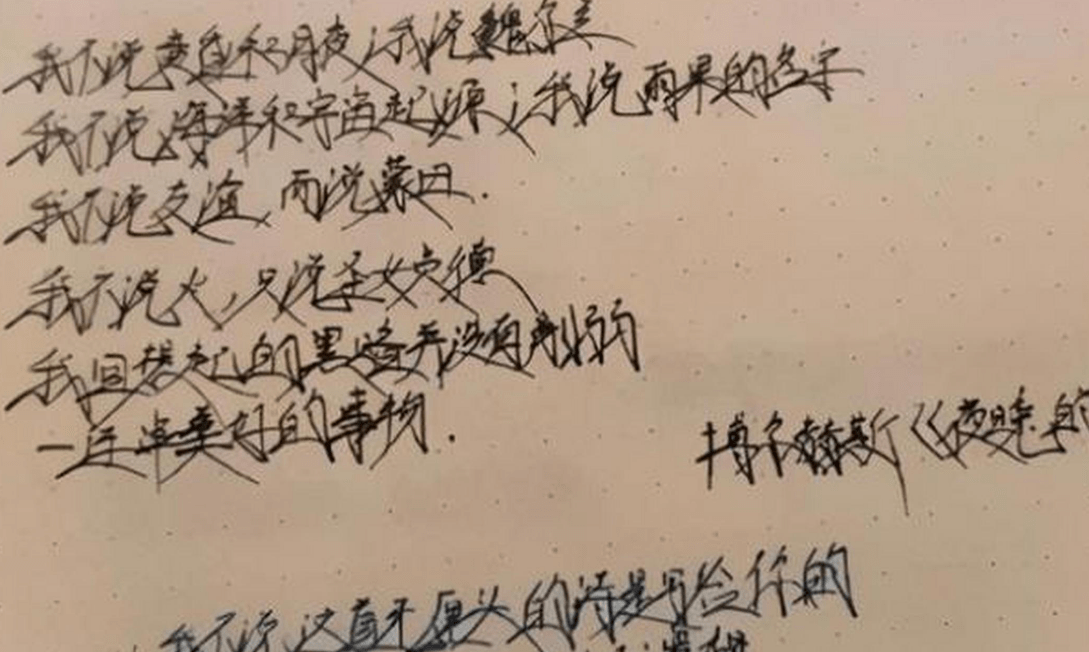 我不说黄昏和月夜;我说魏尔兰
我不说海洋和宇宙起源;我说雨果的名字
我不说友谊,而说蒙田.
我不说火,只说圣女贞德
我回想起的黑暗并没有削弱
一连串美好的事物.
博尔赫斯《夜晚的
我不说这首无厘头的诗是写给你的